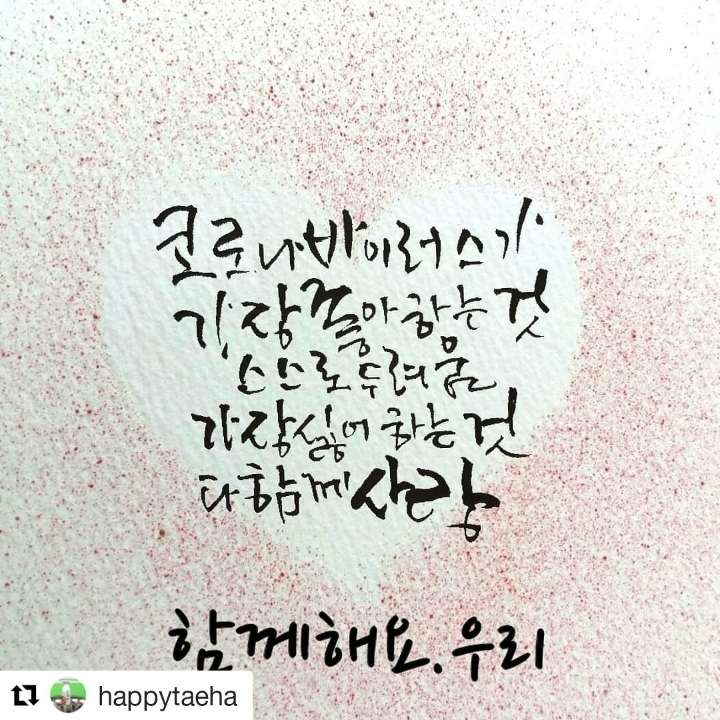 코로나바이러스가
가장 좋아하는 것
스스로 두려움
가장 싫어 하는 것
다함께 사랑
함께해요. 우리
happytaeha